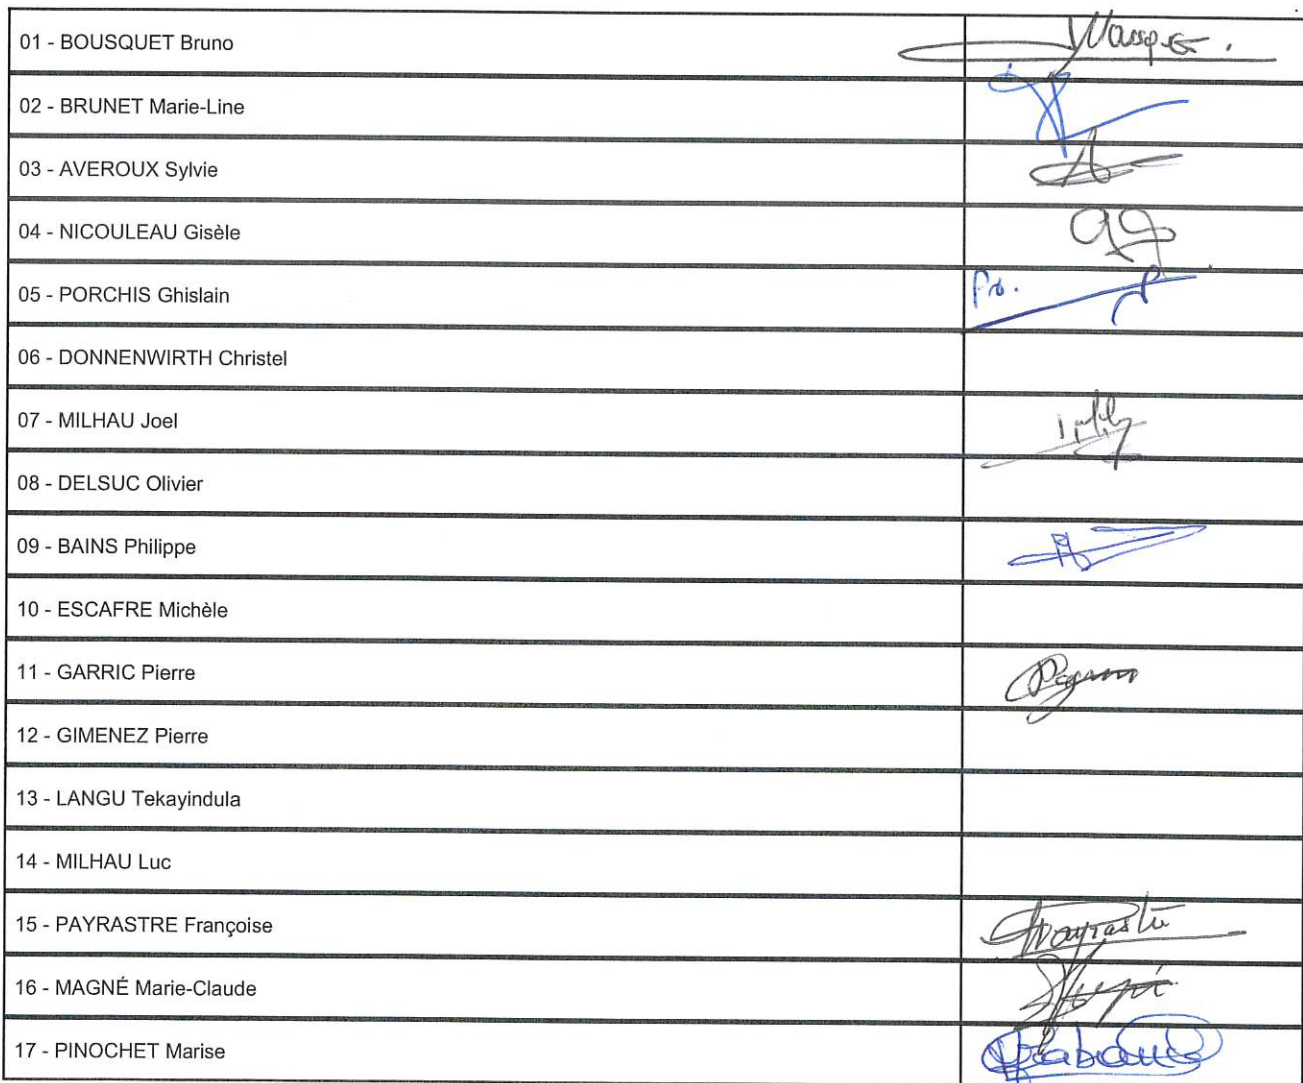 01 - BOUSQUET Bruno
02 - BRUNET Marie-Line
03 - AVEROUX Sylvie
04 - NICOULEAU Gisèle
05 - PORCHIS Ghislain
06 - DONNENWIRTH Christel
07 - MILHAU Joel
08 - DELSUC Olivier
09 - BAINS Philippe
10 - ESCAFRE Michèle
11 - GARRIC Pierre
12 - GIMENEZ Pierre
13 - LANGU Tekayindula
14 - MILHAU Luc
15 - PAYRASTRE Françoise
16 - MAGNÉ Marie-Claude
17 - PINOCHET Marise